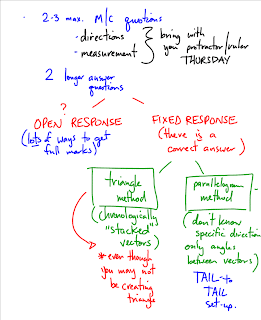 · 2-3 max. M/C questions
- directions
- measurement
bring with
you protractor/ruler
THURSDAY
2 longer answer
questions
?
OPEN RESPONSE
(lots of ways to get
full marks)
FIXED RESPONSE
(there is a
correct answer)
triangle
method
(chronologically
"stacked"
vectors)
* even though
you may not
be creating
triangle
parallelogram
method
(don't know
specific direction
only angles
between vectors)
TAIL-to
TAIL
set-up.